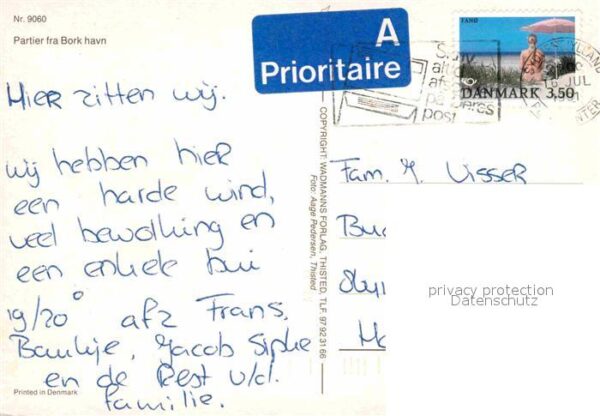 Nr. 9060
Partier fra Bork havn
A
Prioritaire
FANØ
DANMARK 3.50
JUL
post
Hier zitten wij.
wij hebben hier
een harde wind,
veel bewolking en
een enkele bui
19/20° afz Frans,
Baukje, Jacob Sipke
en de Rest v/d.
familie.
COPYRIGHT: WADMANNS FORLAG, THISTED, TLF. 97 92 31 66
Foto: Aage Pedersen, Thisted
Fam. Y. Visser
privacy protection
Datenschutz
Printed in Denmark